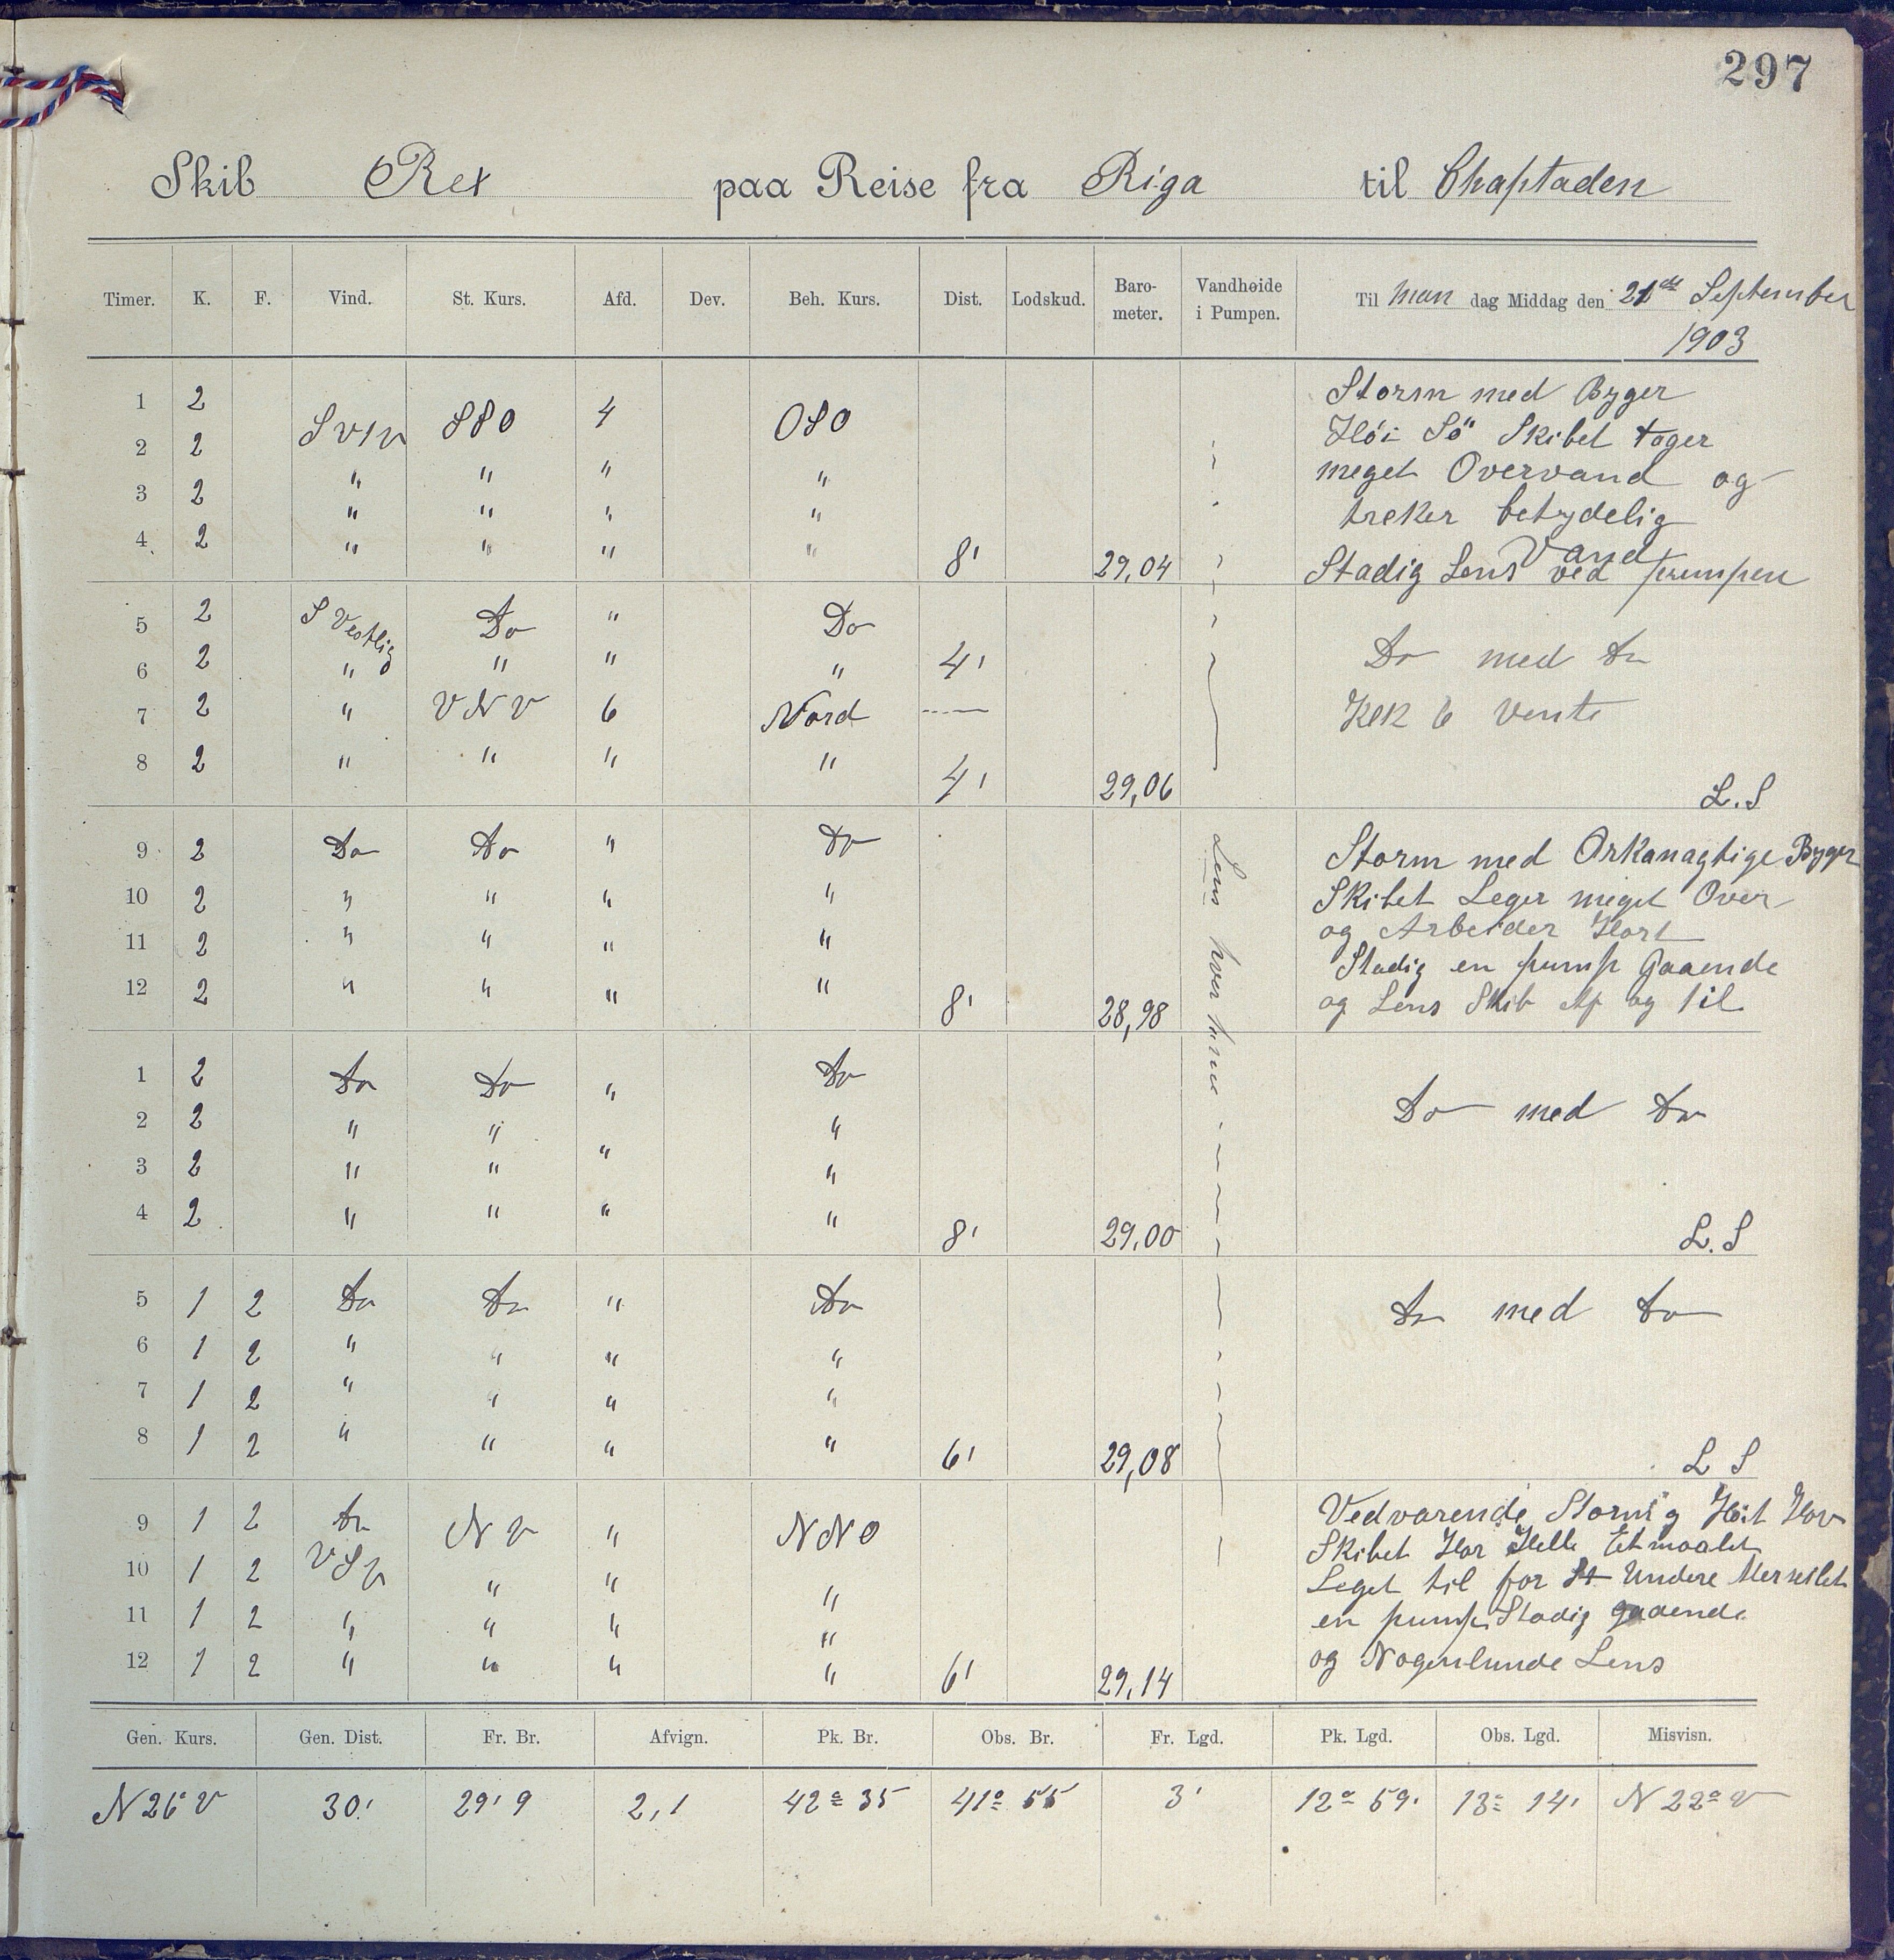 297
Skib Rex paa Reise fra Riga til Chapstaden
Timer. K. F. Vind. St. Kurs. Afd. Dev. Beh. Kurs. Dist. Lodskud. Baro-meter. Vandhøide i Pumpen. Til Man dag Middag den 21de September
1903
1 2 SVtV SSO 4 OSO Storm med Byger
2 2 " " " " Höi Sö Skibet tager
3 2 " " " " meget Overvand og
treker betydelig
4 2 " " " " 8' 29,04 Vand
Stadig Lens ved pumpen
5 2 S Vestlig Do " Do
6 2 " " " " 4' Do med do
7 2 " VNV 6 Nord Klk 6 vente
8 2 " " " " 4' 29,06 L.S
9 2 Do Do " Do Lens hver time Storm med Orkanagtige Byger
10 2 " " " " Skibet Leger meget Over
11 2 " " " " og Arbeider Hart
Stadig en pump Gaaende
12 2 " " " " 8' 28,98 og Lens Skib Af og til
1 2 Do Do " Do
2 2 " " " " Do med do
3 2 " " " "
4 2 " " " " 8' 29,00 L.S
5 1 2 Do Do " Do Do med do
6 1 2 " " " "
7 1 2 " " " "
8 1 2 " " " " 6' 29,08 L S
9 1 2 Do NV " NNO Vedvarende Storm og Höit Hav
10 1 2 VSV " " " Skibet Har Helle Etmaalet
Leget til for St Undere Merseilet
11 1 2 " " " " en pump Stadig gaaende
12 1 2 " " " " 6' 29,14 og Nogenlunde Lens
Gen. Kurs. Gen. Dist. Fr. Br. Afvign. Pk. Br. Obs. Br. Fr. Lgd. Pk. Lgd. Obs. Lgd. Misvisn.
N 26° V 30' 29'9 2,1 42° 35 41° 55 3' 12° 59' 13° 14' N 22° V